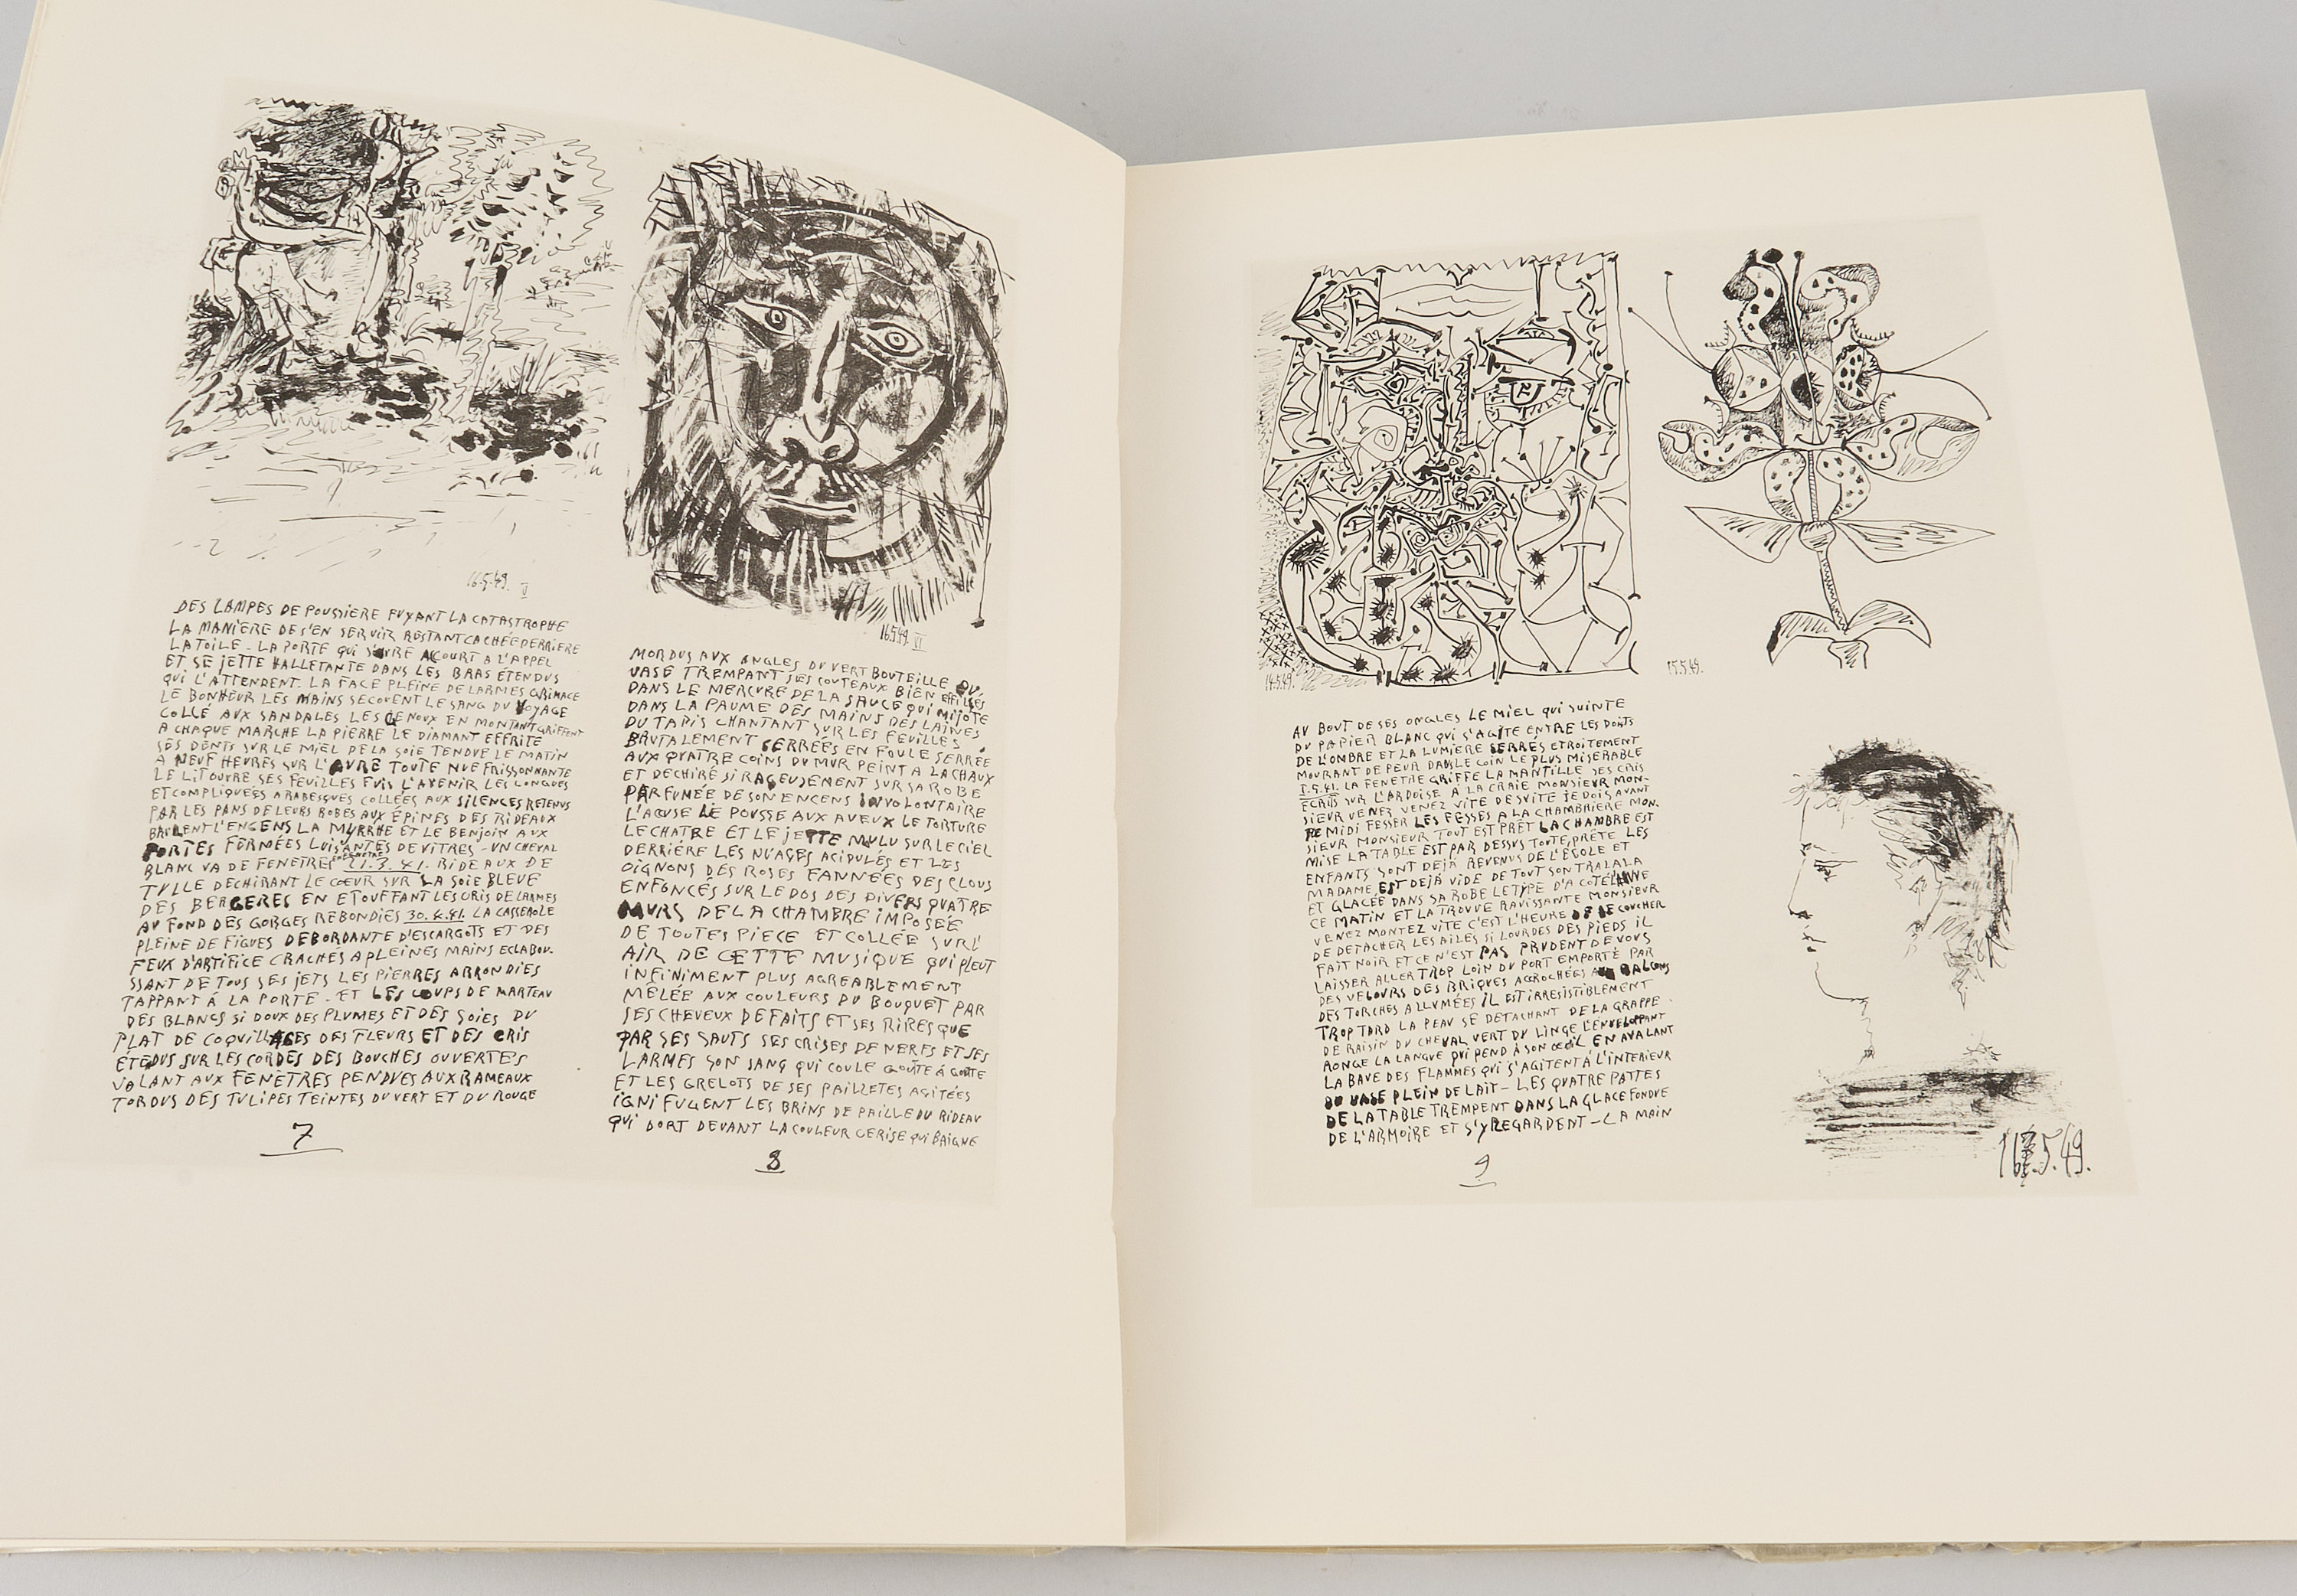 16.5.49. V
DES LAMPES DE POUSSIERE FUYANT LA CATASTROPHE
LA MANIERE DE S'EN SERVIR RESTANT CACHÉE DERRIERE
LA TOILE - LA PORTE QUI S'OUVRE ACOURT A L'APPEL
ET SE JETTE HALLETANTE DANS LES BRAS ÉTENDUS
QUI L'ATTENDENT. LA FACE PLEINE DE LARMES GRIMACE
LE BONHEUR LES MAINS SECOUENT LE SANG DU VOYAGE
COLLÉ AUX SANDALES LES GENOUX EN MONTANT GRIFFENT
A CHAQUE MARCHE LA PIERRE LE DIAMANT EFFRITE
SES DENTS SUR LE MIEL DE LA SOIE TENDUE LE MATIN
A NEUF HEURES SUR L'AURE TOUTE NUE FRISSONNANTE
LE LIT OUVRE SES FEUILLES FUIS L'AVENIR LES LONGUES
ET COMPLIQUÉES ARABESQUES COLLÉES AUX SILENCES RETENUS
PAR LES PANS DE LEURS ROBES AUX ÉPINES DES RIDEAUX
BRULENT L'ENCENS LA MYRRHE ET LE BENJOIN AUX
PORTES FERMÉES LUISANTES DE VITRES - UN CHEVAL
BLANC VA DE FENETRE 21.3.41. RIDEAUX DE
TULLE DECHIRANT LE COEUR SUR LA SOIE BLEUE
DES BERGERES EN ETOUFFANT LES CRIS DE LARMES
AU FOND DES GORGES REBONDIES 30.4.41. LA CASSEROLE
PLEINE DE FIGUES DEBORDANTE D'ESCARGOTS ET DES
FEUX D'ARTIFICE CRACHÉS A PLEINES MAINS ECLABOU-
SSANT DE TOUS SES JETS LES PIERRES ARRONDIES
TAPPANT À LA PORTE - ET LES COUPS DE MARTEAU
DES BLANCS SI DOUX DES PLUMES ET DES SOIES DU
PLAT DE COQUILLAGES DES FLEURS ET DES CRIS
ÉTEDUS SUR LES CORDES DES BOUCHES OUVERTES
VOLANT AUX FENETRES PENDUES AUX RAMEAUX
TORDUS DES TULIPES TEINTES DU VERT ET DU ROUGE
7
16.5.49. VI
MORDUS AUX ANGLES DU VERT BOUTEILLE DU
VASE TREMPANT SES COUTEAUX BIEN EFFILÉS
DANS LE MERCURE DE LA SAUCE QUI MIJOTE
DANS LA PAUME DES MAINS DES LAINES
DU TAPIS CHANTANT SUR LES FEUILLES
BRUTALEMENT SERRÉES EN FOULE SERRÉE
AUX QUATRE COINS DU MUR PEINT A LA CHAUX
ET DECHIRÉ SI RAGEUSEMENT SUR SA ROBE
PARFUMÉE DE SON ENCENS INVOLONTAIRE
L'ACUSE LE POUSSE AUX AVEUX LE TORTURE
LE CHATRE ET LE JETTE MULU SUR LE CIEL
DERRIÉRE LES NUAGES ACIDULÉS ET LES
OIGNONS DES ROSES FANNÉES DES CLOUS
ENFONCÉS SUR LE DOS DES DIVERS QUATRE
MURS DE LA CHAMBRE IMPOSÉE
DE TOUTES PIECE ET COLLÉE SUR L'
AIR DE CETTE MUSIQUE QUI PLEUT
INFINIMENT PLUS AGREABLEMENT
MÊLÉE AUX COULEURS DU BOUQUET PAR
SES CHEVEUX DEFAITS ET SES RIRES QUE
PAR SES SAUTS SES CRISES DE NERFS ET SES
LARMES SON SANG QUI COULE GOUTE À GOUTE
ET LES GRELOTS DE SES PAILLETES AGITÉES
IGNIFUGENT LES BRINS DE PAILLE DU RIDEAU
QUI DORT DEVANT LA COULEUR CERISE QUI BAIGNE
8
14.5.49.
15.5.49.
AU BOUT DE SES ONGLES LE MIEL QUI SUINTE
DU PAPIER BLANC QUI S'AGITE ENTRE LES DOITS
DE L'OMBRE ET LA LUMIERE SERRÉS ETROITEMENT
MOURANT DE PEUR DANS LE COIN LE PLUS MISÉRABLE
1.5.41. LA FENETRE GRIFFE LA MANTILLE SES CRIS
ÉCRITS SUR L'ARDOISE À LA CRAIE MONSIEUR MON-
SIEUR VENEZ VENEZ VITE DE SUITE JE DOIS AVANT
MIDI FESSER LES FESSES A LA CHAMBRIERE MON-
SIEUR MONSIEUR TOUT EST PRÊT LA CHAMBRE EST
MISE LA TABLE EST PAR DESSUS TOUTE PRÊTE LES
ENFANTS SONT DEJÀ REVENUS DE L'ÉCOLE ET
MADAME EST DEJÀ VIDE DE TOUT SON TRALALA
ET GLACÉE DANS SA ROBE LE TYPE D'A COTÉ
CE MATIN ET LA TROUVE RAVISSANTE MONSIEUR
VENEZ MONTEZ VITE C'EST L'HEURE DE SE COUCHER
DE DETACHER LES AILES SI LOURDES DES PIEDS IL
FAIT NOIR ET CE N'EST PAS PRUDENT DE VOUS
LAISSER ALLER TROP LOIN DU PORT EMPORTÉ PAR
DES VELOURS DES BRIQUES ACCROCHÉES AUX BALCONS
DES TORCHES ALLUMÉES IL EST IRRESISTIBLEMENT
TROP TARD LA PEAU SE DETACHANT DE LA GRAPPE
DE RAISIN DU CHEVAL VERT DU LINGE L'ENVELOPPANT
RONGE LA LANGUE QUI PEND À SON OEIL EN AVALANT
LA BAVE DES FLAMMES QUI S'AGITENT À L'INTERIEUR
DU VASE PLEIN DE LAIT - LES QUATRE PATTES
DE LA TABLE TREMPENT DANS LA GLACE FONDUE
DE L'ARMOIRE ET S'Y REGARDENT - LA MAIN
9
16.5.49.